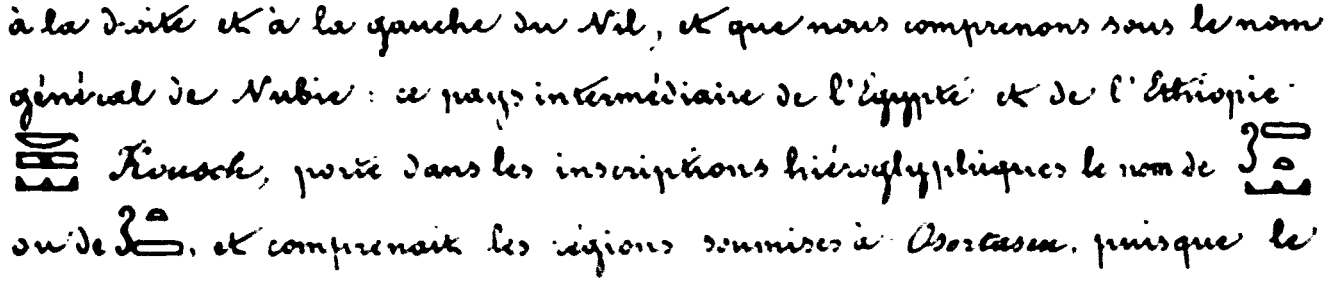 à la droite et à la gauche du Nil, et que nous comprenons sous le nom
général de Nubie : ce pays intermédiaire de l'Égypte et de l'Ethiopie
Kousch, porte dans les inscriptions hiéroglyphiques le nom de
ou de , et comprenait les régions soumises à Osortasen, puisque le